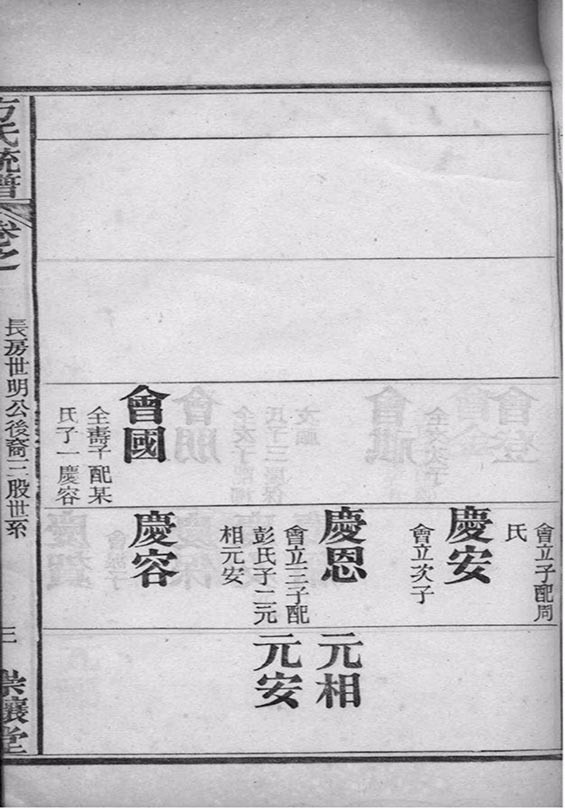 會國
全壽子配某
氏了一慶容
會立子配周
氏
慶安
會立次子
慶恩
會立三子配
彭氏子二元
相元安
慶容
元相
元安
方氏統譜
卷之
長房世明公後裔三股世系
三
堂